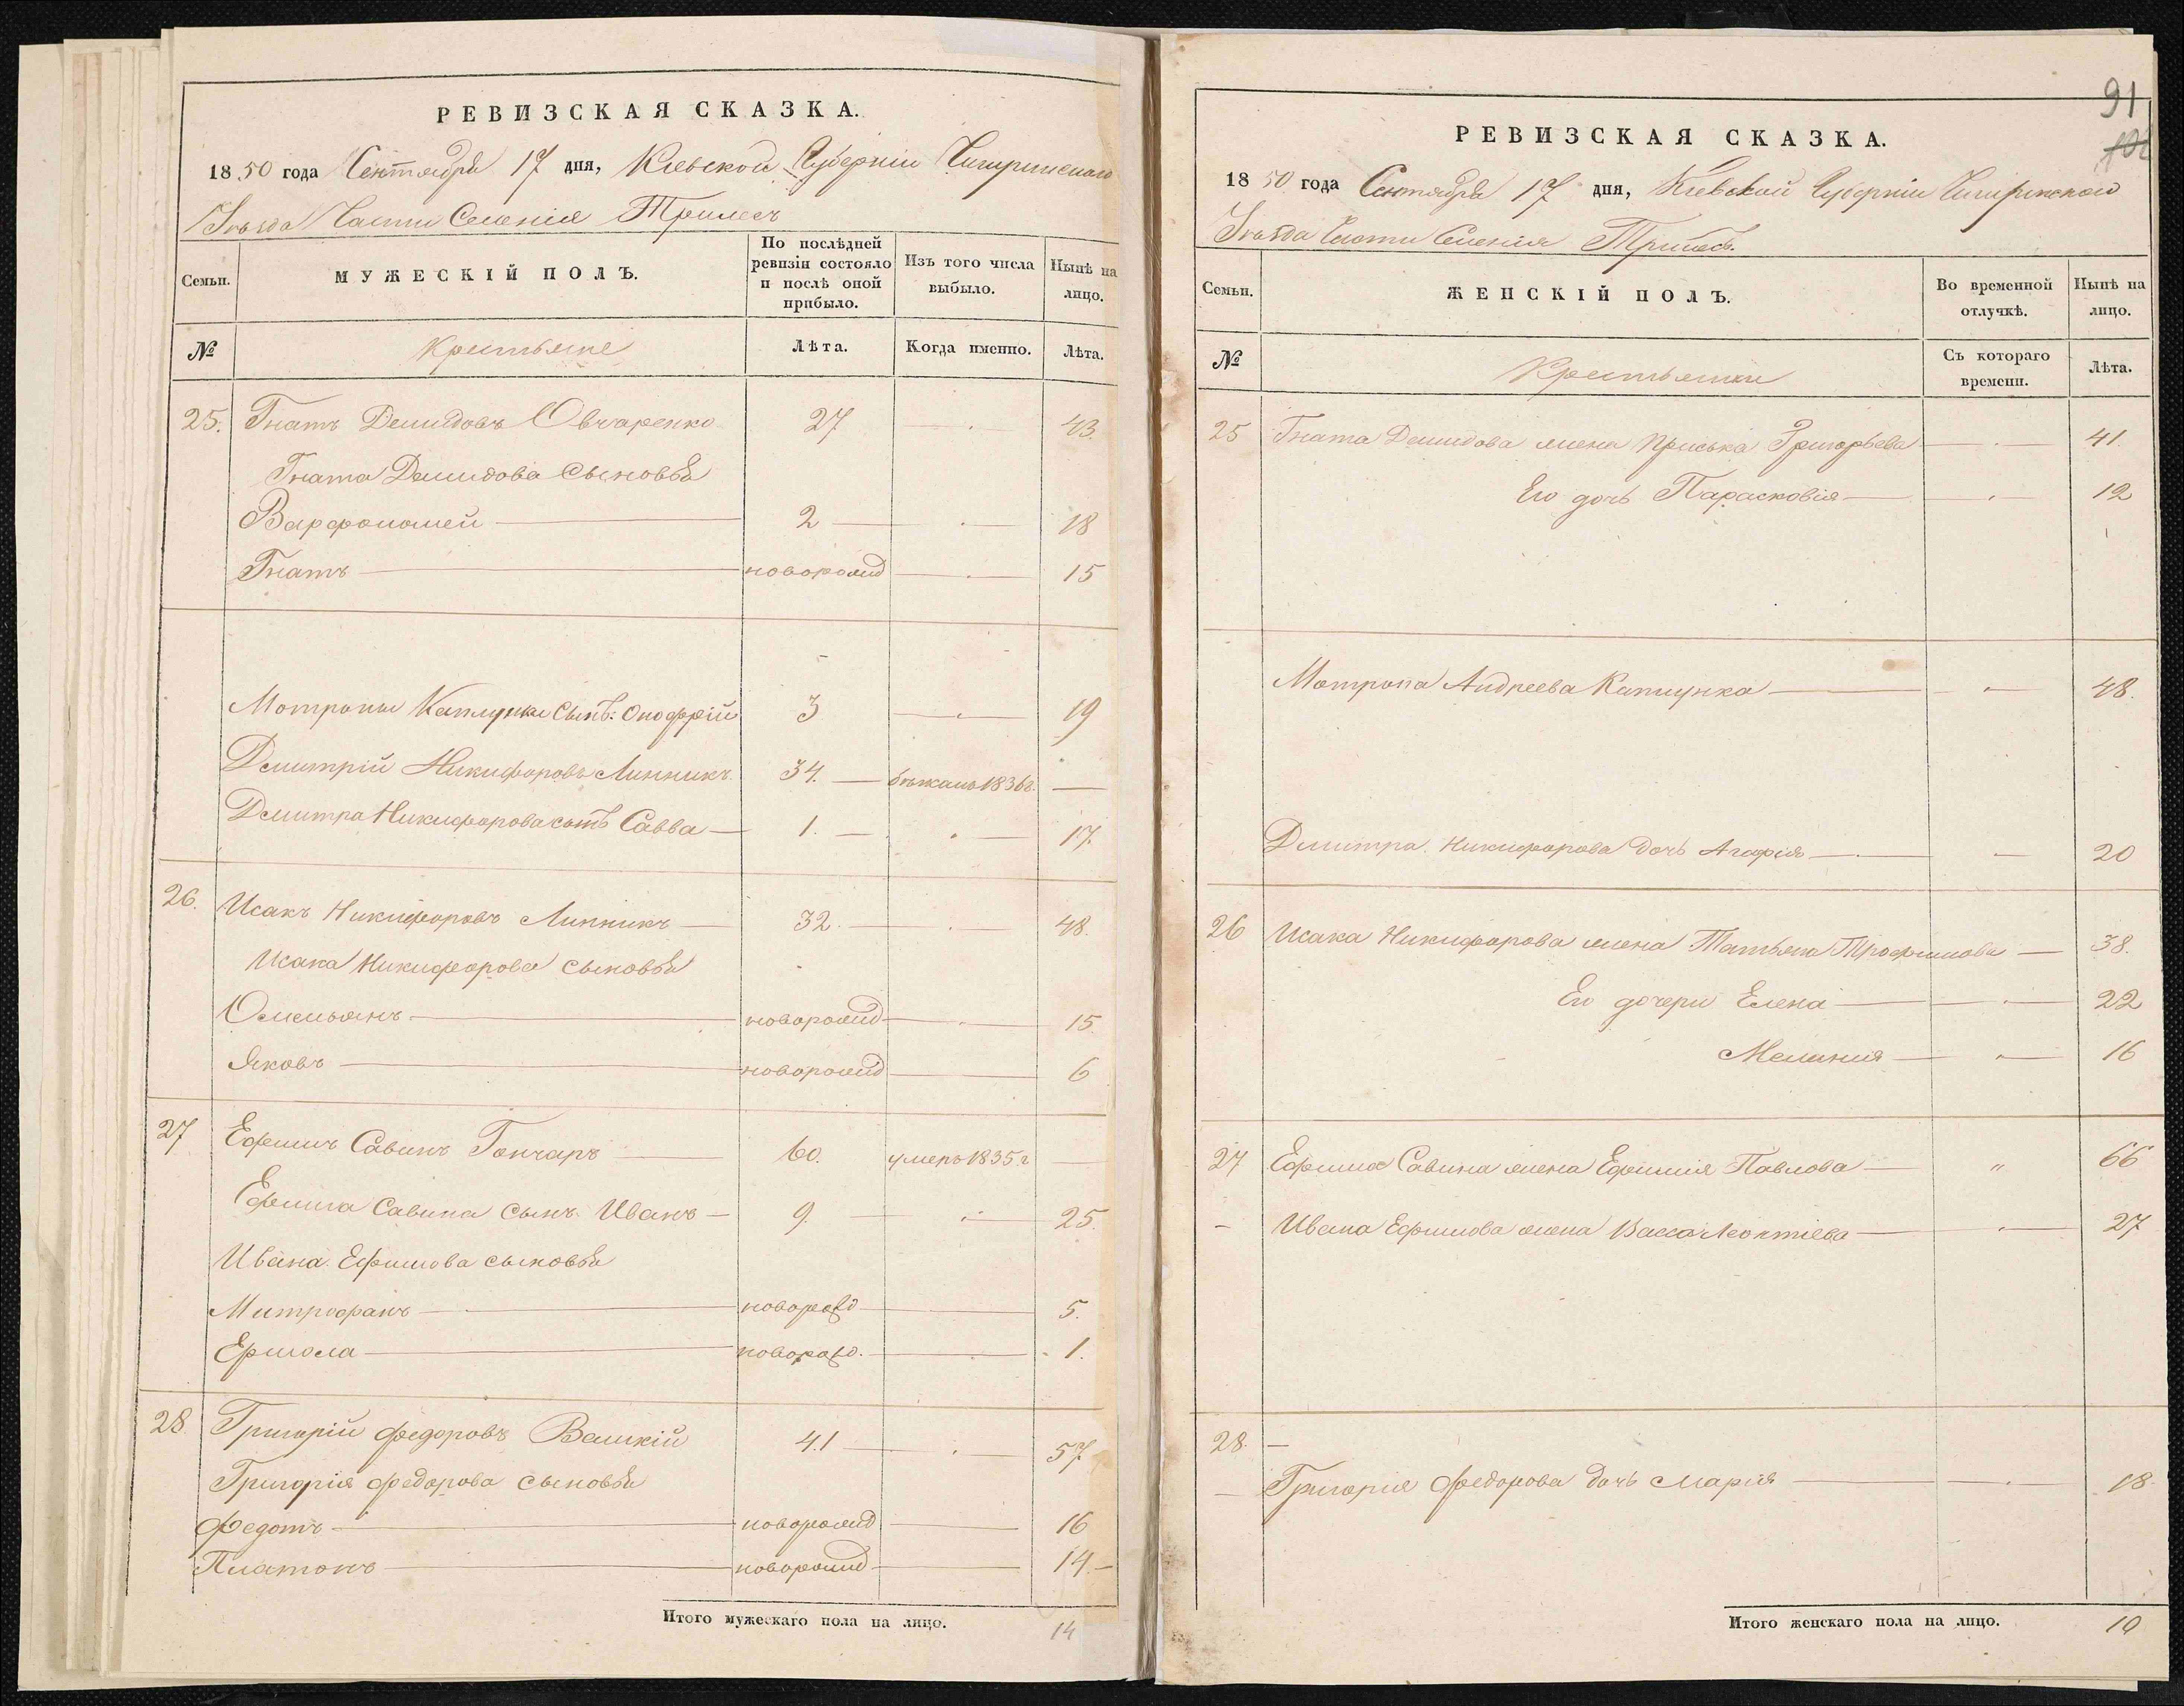 РЕВИЗСКАЯ СКАЗКА.
18 50 года Сентября 17 дня, Кіевской Губерніи Чигиринскаго
Уѣзда Части Селенія Трилесъ
Семьи. МУЖЕСКІЙ ПОЛЪ. По послѣдней ревизіи состояло и послѣ оной прибыло. Изъ того числа выбыло. Нынѣ на лицо.
№ Крестьяне Лѣта. Когда именно. Лѣта.
25. Гнатъ Демидовъ Овчаренко 27 43.
Гната Демидова Сыновья
Варфоломей 2 18
Гнатъ новорожд 15
Мотроны сынъ: Онофрій 3 19
Дмитрій Никифоровъ Линникъ 34. бѣжалъ 1836г.
Дмитра Никифорова сынъ Савва 1. 17.
26. Исакъ Никифоровъ Линникъ 32. 48.
Исака Никифорова сыновья
Омельянъ новорожд 15.
Яковъ новорожд 6
27 Ефимъ Савинъ Гончаръ 60. умеръ 1835.г
Ефима Савина сынъ Иванъ 9. 25.
Ивана Ефимова сыновья
Митрофанъ новорожд 5.
Ермола новорожд. 1.
28. Григорій Федоровъ Великій 41 57
Григорія Федорова сыновья
Федотъ новорожд 16
Платонъ новорожд 14
Итого мужескаго пола на лицо. 14
91
РЕВИЗСКАЯ СКАЗКА.
18 50 года Сентября 17 дня, Кіевской Губерніи Чигиринскаго
Уѣзда Части Селенія Трилесъ.
Семьи. ЖЕНСКІЙ ПОЛЪ. Во временной отлучкѣ. Нынѣ на лицо.
№ Крестьянки Съ котораго времени. Лѣта.
25 Гната Демидова жена Приська Григорьева 41.
Его дочь Парасковія 12
Мотрона Андреева 48.
Дмитра Никифорова дочь Агафія 20
26 Исака Никифорова жена Татьяна Трофимова 38.
Его дочери Елена 22
Мелания 16
27 Ефима Савина жена Ефимія Павлова " 66
Ивана Ефимова жена Васса Леонтіева 27
28.
Григорія Федорова дочь Марія 18.
Итого женскаго пола на лицо. 10